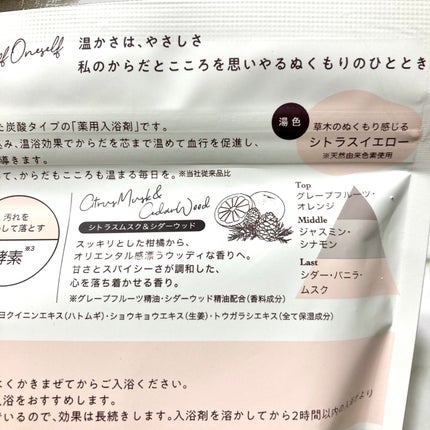 of Oneself
温かさは、やさしさ
私のからだとこころを思いやるぬくもりのひととき
湯色
草木のぬくもり感じる
シトラスイエロー
※天然由来色素使用
た炭酸タイプの「薬用入浴剤」です。
込み、温浴効果でからだを芯まで温めて血行を促進し、
導きます。
て、からだもこころも温まる毎日を。※当社従来品比
汚れを
して落とす
酵素※3
Citrus Musk &
Cedar Wood
シトラスムスク&シダーウッド
スッキリとした柑橘から、
オリエンタル感漂うウッディな香りへ。
甘さとスパイシーさが調和した、
心を落ち着かせる香り。
※グレープフルーツ精油・シダーウッド精油配合(香料成分)
Top
グレープフルーツ・
オレンジ
Middle
ジャスミン・
シナモン
Last
シダー・バニラ・
ムスク
ヨクイニンエキス(ハトムギ)・ショウキョウエキス(生姜)・トウガラシエキス(全て保湿成分)
よくかきまぜてからご入浴ください。
入浴をおすすめします。
いるので、効果は長続きします。入浴剤を溶かしてから2時間以内の入浴
より